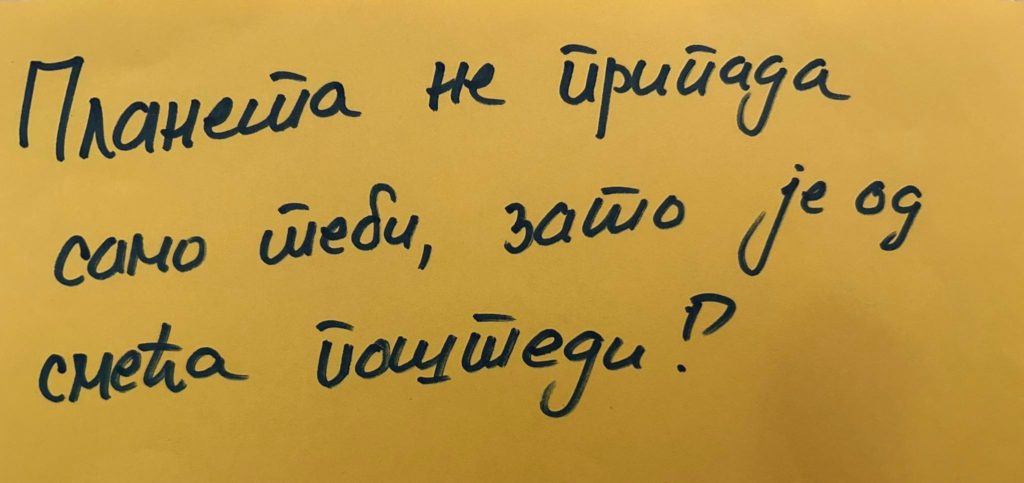 Планета не припада
само теби, зато је од
смећа поштеди!